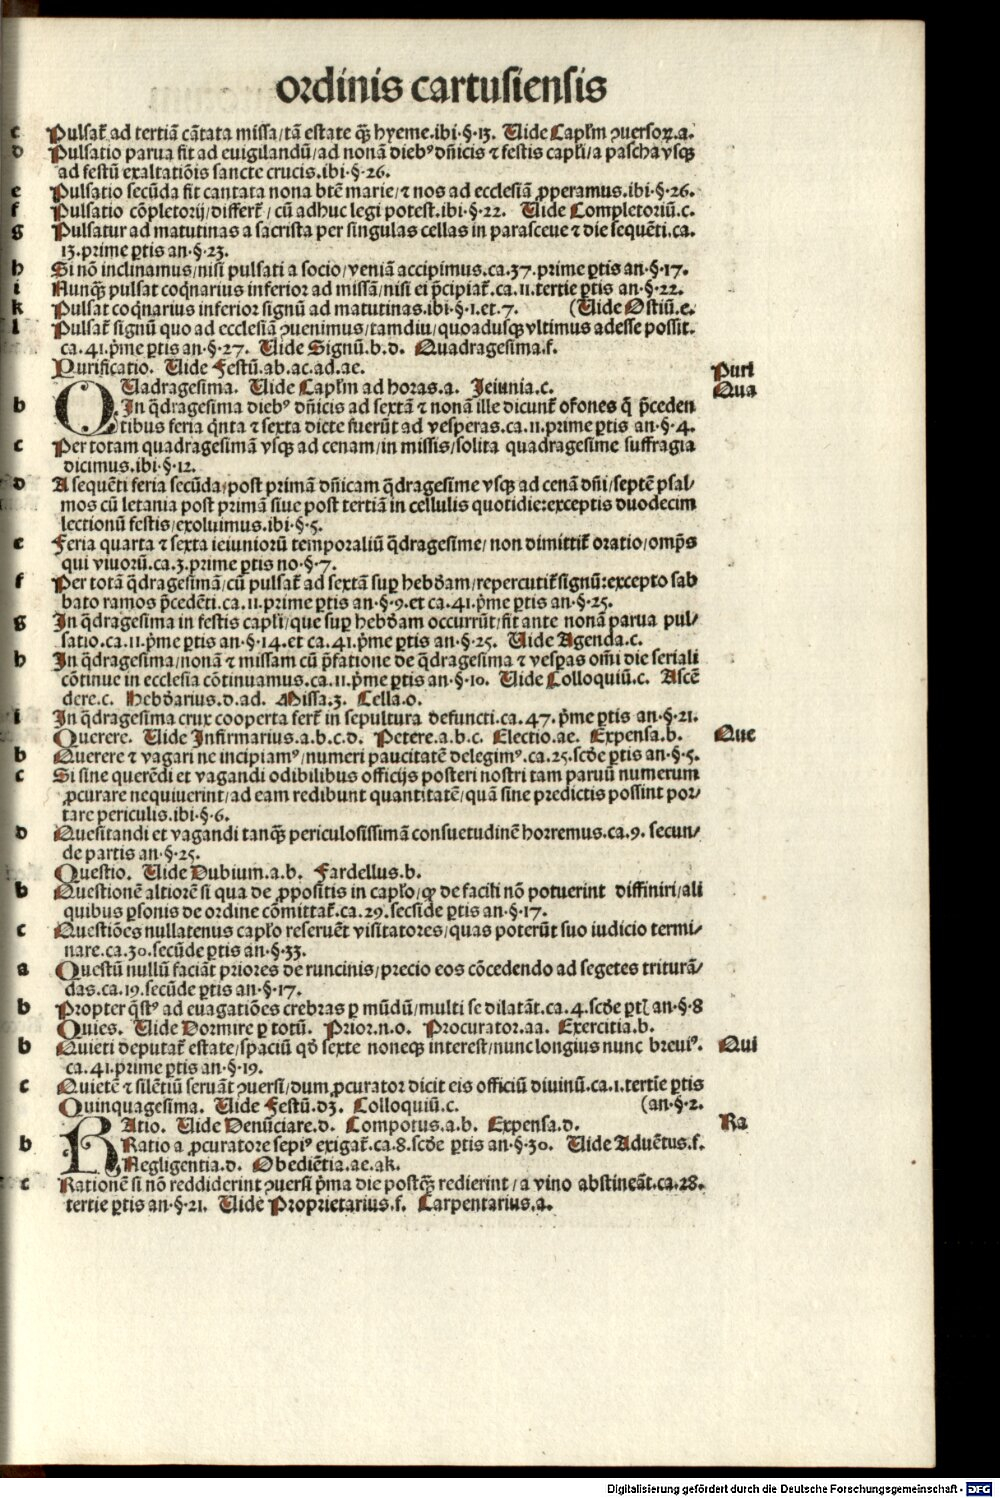 ordinis cartusiensis
c Pulsat᷑ ad tertiā cātata missa/tā estate q̄ꝫ hyeme.ibi·§·13. Uide Caplm̄ ꝯuersoꝝ.a.
d Pulsatio parua fit ad euigilandū/ad nonā dieb⁹ dn̄icis ⁊ festis capl̄i/a pascha vsqꝫ
ad festū exaltatiōis sancte crucis.ibi·§·26.
e Pulsatio secūda fit cantata nona btē marie/⁊ nos ad ecclesiā ꝓperamus.ibi·§·26.
f Pulsatio cōpletorij/differt᷑/ cū adhuc legi potest.ibi·§·22. Uide Completoriū.c.
g Pulsatur ad matutinas a sacrista per singulas cellas in parasceue ⁊ die sequēti.ca.
13.prime ꝑtis an·§·23.
h Si nō inclinamus/nisi pulsati a socio/veniā accipimus.ca.37.prime ꝑtis an·§·17.
i Nunqꝫ pulsat coqͥnarius inferior ad missā/nisi ei p̄cipiat᷑.ca.11.tertie ꝑtis an·§·22.
k Pulsat coqͥnarius inferior signū ad matutinas.ibi·§·1.et.7. (Uide Ostiū.e.
l Pulsat᷑ signū quo ad ecclesiā ꝯuenimus/tamdiu/quoadusqꝫ vltimus adesse possit.
ca.41.p̄me ꝑtis an·§·27. Uide Signū.b.d. Quadragesima.f.
Purificatio. Uide Festū.ab.ac.ad.ae. Puri
QUadragesima. Uide Caplm̄ ad horas.a. Jeiunia.c. Qua
b In q̄dragesima dieb⁹ dn̄icis ad sextā ⁊ nonā ille dicunt᷑ orōnes q̄ p̄ceden
tibus feria qͥnta ⁊ sexta dicte fuerūt ad vesperas.ca.11.prime ꝑtis an·§·4.
c Per totam quadragesimā vsqꝫ ad cenam/in missis/solita quadragesime suffragia
dicimus.ibi·§·12.
d A sequēti feria secūda/post primā dn̄icam q̄dragesime vsqꝫ ad cenā dn̄i/septē psal⸗
mos cū letania post primā siue post tertiā in cellulis quotidie:exceptis duodecim
lectionū festis/exoluimus.ibi·§·5.
e Feria quarta ⁊ sexta ieiuniorū temporaliū q̄dragesime/ non dimittit᷑ oratio/omp̄s
qui viuorū.ca.3.prime ꝑtis no·§·7.
f Per totā q̄dragesimā/cū pulsat᷑ ad sextā suꝑ hebd̄am/repercutit᷑ signū:excepto sab
bato ramos p̄cedēti.ca.11.prime ꝑtis an·§·9.et ca.41.p̄me ꝑtis an·§·25.
g In q̄dragesima in festis capl̄i/que suꝑ hebd̄am occurrūt/fit ante nonā parua pul⸗
satio.ca.11.p̄me ꝑtis an·§·14.et ca.41.p̄me ꝑtis an·§·25. Uide Agenda.c.
h In q̄dragesima/nonā ⁊ missam cū p̄fatione de q̄dragesima ⁊ vesꝑas omi die feriali
cōtinue in ecclesia cōtinuamus.ca.11.p̄me ꝑtis an·§·10. Uide Colloquiū.c. Ascē
dere.c. Hebd̄arius.d.ad. Missa.3. Cella.o.
i In q̄dragesima crux cooperta fert᷑ in sepultura defuncti.ca.47.p̄me ꝑtis an·§·21.
Querere. Uide Infirmarius.a.b.c.d. Petere.a.b.c. Electio.ae. Expensa.b. Que
b Querere ⁊ vagari ne incipiam⁹/numeri paucitatē delegim⁹.ca.25.scd̄e ꝑtis an·§·5.
c Si sine querēdi et vagandi odibilibus officijs posteri nostri tam paruū numerum
ꝓcurare nequiuerint/ad eam redibunt quantitatē/quā sine predictis possint por⸗
tare periculis.ibi·§·6.
d Quesitandi et vagandi tanqꝫ periculosissimā consuetudinē horremus.ca.9.secun⸗
de partis an·§·25.
Questio. Uide Dubium.a.b. Fardellus.b.
b Questionē altiorē si qua de ꝓpositis in capl̄o/qꝫ de facili nō potuerint diffiniri/ali
quibus ꝑsonis de ordine cōmittat᷑.ca.29.secūde ꝑtis an·§·17.
c Questiōes nullatenus capl̄o reseruēt visitatores/quas poterūt suo iudicio termi⸗
nare.ca.30.secūde ꝑtis an·§·33.
a Questū nullū faciāt priores de runcinis/precio eos cōcedendo ad segetes triturā⸗
das.ca.19.secūde ꝑtis an·§·17.
b Propter q̄st⁹ ad euagatiōes crebras ꝑ mūdū/multi se dilatāt.ca.4.scd̄e ꝑtꝭ an·§·8
Quies. Uide Dormire ꝑ totū. Prior.n.o. Procurator.aa. Exercitia.b.
b Quieti deputat᷑ estate/spaciū qd̄ sexte noneqꝫ interest/nunc longius nunc breui⁹. Qui
ca.41.prime ꝑtis an·§·19.
c Quietē ⁊ silētiū seruāt ꝯuersi/dum ꝓcurator dicit eis officiū diuinū.ca.1.tertie ꝑtis
Quinquagesima. Uide Festū.d3. Colloquiū.c. (an·§·2.
RAtio. Uide Denūciare.d. Compotus.a.b. Expensa.d. Ra
b Ratio a ꝓcuratore sepi⁹ exigat᷑.ca.8.scd̄e ꝑtis an·§·30. Uide Aduētus.f.
Negligentia.d. Obediētia.ae.ak.
c Rationē si nō reddiderint ꝯuersi p̄ma die postqꝫ redierint/a vino abstineāt.ca.28.
tertie ꝑtis an·§·21. Uide Proprietarius.f. Carpentarius.a.
Digitalisierung gefördert durch die Deutsche Forschungsgemeinschaft - DFG